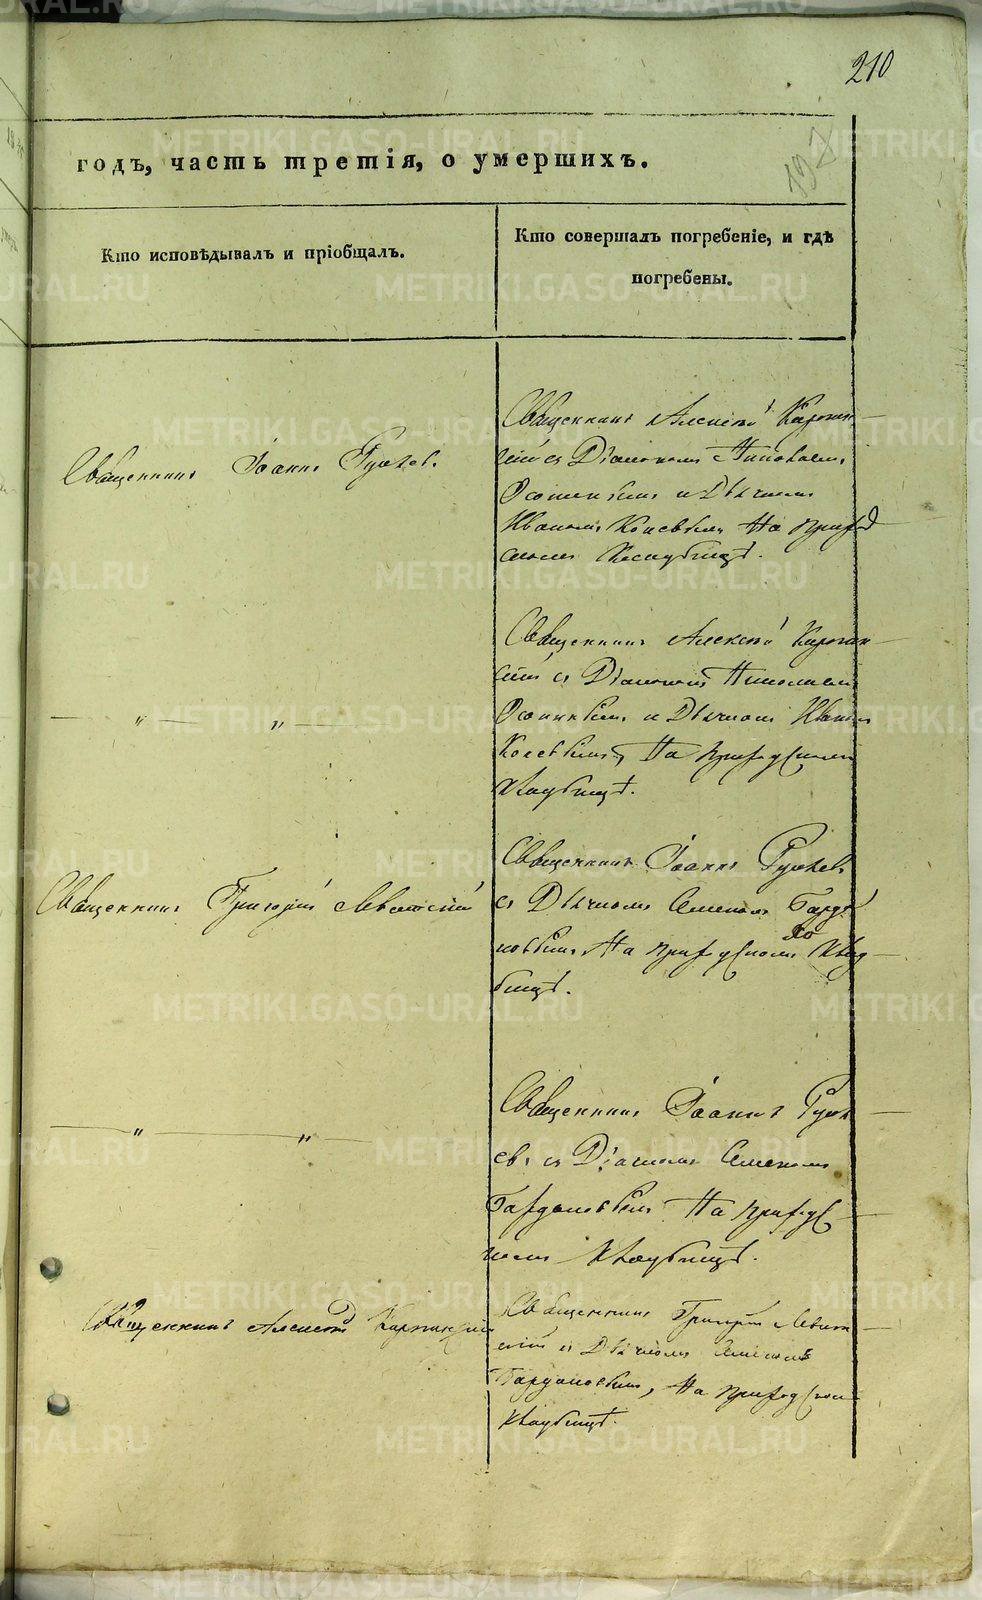 210
192
годъ, часть третія, о умершихъ.
Кто исповѣдывалъ и пріобщалъ.
Кто совершалъ погребеніе, и гдѣ
погребены.
Священникъ Іоаннъ
Священникъ Алексѣй Карпин-
скій съ Діакономъ Николаемъ
и Дьячкомъ
Иваномъ На приход
скомъ Кладбищѣ.
Священникъ Алексѣй Карпин-
скій съ Діакономъ Николаемъ
и Дьячкомъ Иваномъ
На приходскомъ
кладбищѣ.
— " — " —
Священникъ Григорій Левитскій
Священникъ Іоаннъ
съ Дьячкомъ Семеномъ
На приходскомъ Клад-
бищѣ.
— " — " —
Священникъ Іоаннъ
съ Діакономъ Семеномъ
На приходс-
комъ кладбищѣ.
Священникъ Алексѣй Карпинскій
Священникъ Григорій Левит-
скій съ Дьячкомъ Семеномъ
На приходском
кладбищѣ.
METRIKI.GASO-URAL.RU